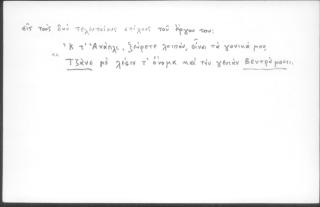 εἰς τοὺς δυὸ τελευταίους στίχους τοῦ ἔργου του:
Ἐκ τ' Ἀνάπλι, ξεύρετε λοιπόν, εἶναι τὰ γονικά μας
Τζάνε μὲ λέσιν τ' ὄνομα καὶ τὴν γενεὰν Βεντρά μοσι.